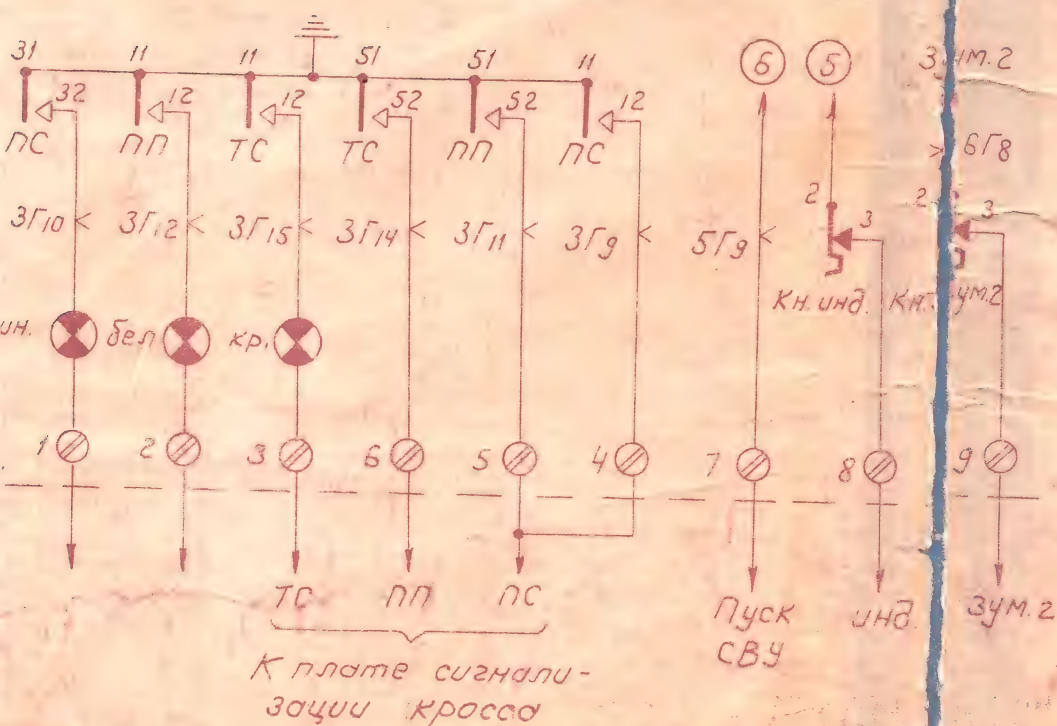 31 11 11 51 51 11 6 5
32 12 12 52 52 12
ПС ПП ТС ТС ПП ПС
6Г8
2 3 2 3
3Г10 3Г12 3Г15 3Г14 3Г11 3Г9 5Г9
Кн. инд.
бел кр.
1 2 3 6 5 4 7 8 9
ТС ПП ПС Пуск инд. Зум.2
СВУ
К плате сигнали-
зации кросса